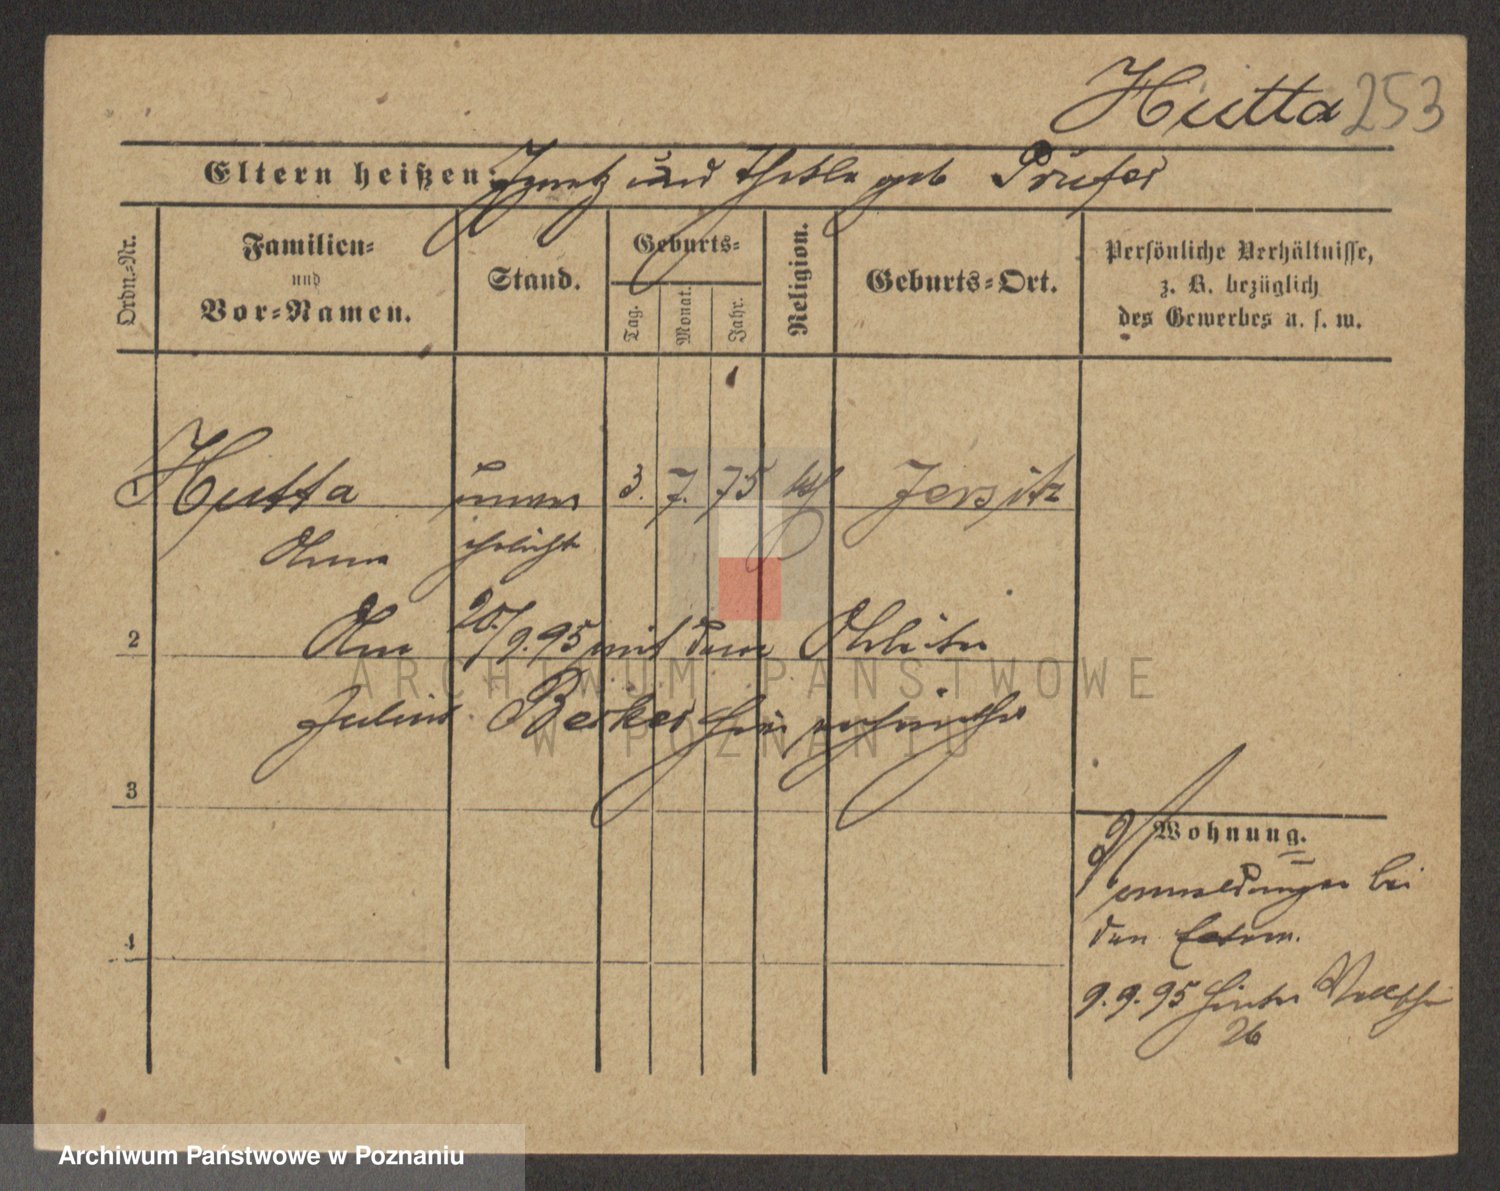 Hutta 253
Eltern heißen: Ignatz und Thekla geb Prüfer
Ordn.-Nr.
Familien-
und
Vor-Namen.
Stand.
Geburts-
Tag.
Monat.
Jahr.
Religion.
Geburts-Ort.
Persönliche Verhältnisse,
z. B. bezüglich
des Gewerbes u. s. w.
Hutta unver 3. 7. 75 kf Jersitz
Anna ehelicht
2 Am 20./9.95 mit dem Arbeiter
Julius Berker hier
3
Wohnung.
bei
den Eltern.
9.9.95 Hinter Wallischei
26
4
ARCHIWUM PAŃSTWOWE
W POZNANIU
Archiwum Państwowe w Poznaniu